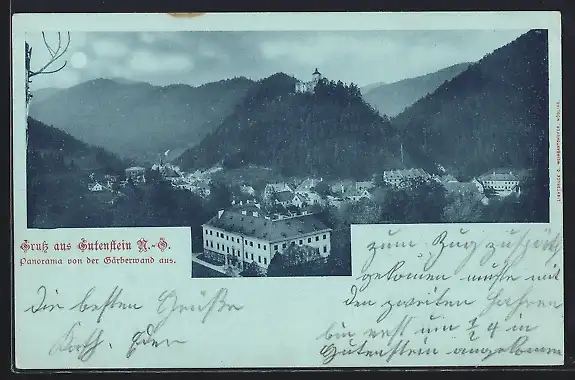 Gruß aus Gutenstein N.-Ö.
Panorama von der Gärberwand aus.
zum Zug zu spät
gekommen mußte mit
den zweiten fahren
bin erst um ½ 4 in
Gutenstein angekommen
Die besten Grüße